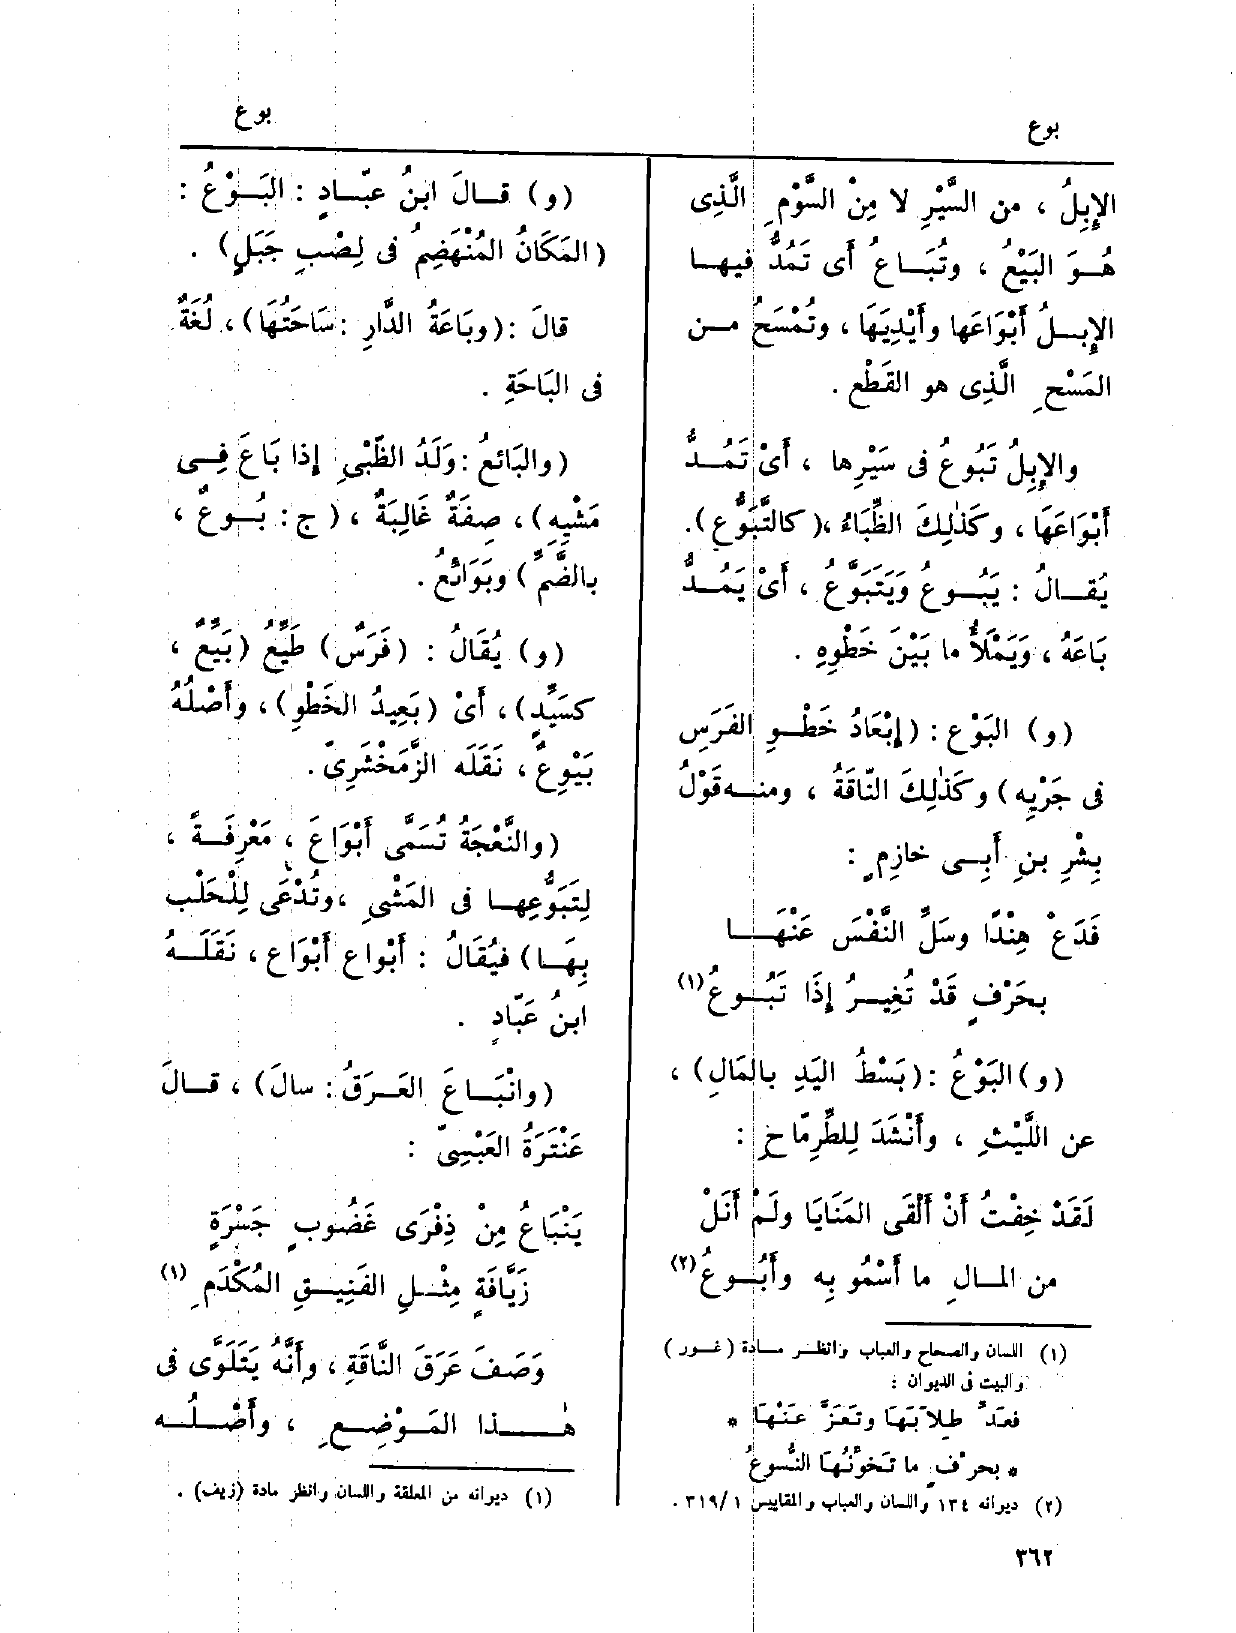 بوع
بوع
الإِبِلُ ، من السَّيْرِ لا مِنْ السَّوْمِ الَّذِى
هُـوَ البَيْعُ ، وتُبَـاعُ أَى تَمُدُّ فيهـا
الإِبـلُ أَبْوَاعَها وأَيْدِيَهَا ، وتُمْسَحُ مـن
المَسْحِ الَّذِى هو القَطْع .
والإِبِلُ تَبُوعُ فى سَيْرِها ، أَىْ تَمُـدُّ
أَبْوَاعَهَا ، وكَذٰلِكَ الظِّبَاءُ ،( كالتَّبَوُّعِ ).
يُقـالُ : يَبُـوعُ وَيَتَبَوَّعُ ، أَىْ يَمُـدُّ
بَاعَهُ ، وَيَمْلَأُ ما بَيْنَ خَطْوِهِ .
( و ) البَوْع : (إِبْعَادُ خَطْـوِ الفَرَسِ
فى جَرْيِه ) وكَذٰلِكَ النّاقَةُ ، ومنـه قَوْلُ
بِشْرِ بنِ أَبِـى خازِمٍ :
فَدَعْ هِنْدًا وسَلِّ النَّفْسَ عَنْهَـا
بحَرْفٍ قَدْ تُغِيـرُ إِذَا تَبُـوعُ (١)
( و ) البَوْعُ : (بَسْطُ اليَدِ بالمَالِ) ،
عن اللَّيْثِ ، وأَنْشَدَ لِلطِّرِمّاحِ :
لَقَدْ خِفْتُ أَنْ أَلْقَى المَنَايَا ولَمْ أَنَلْ
من المـالِ ما أَسْمُو بِه وأَبُـوعُ (٢)
(١) اللسان والصحاح والعباب وانظـر مـادة ( غـور )
والبيت فى الديوان :
فعَدِّ طِلاَبَهَا وتَعَزَّ عَنْهَا *
* بحرْفٍ ما تَخَوَّنُهَا النُّسُوعُ
(٢) ديوانه ١٣٤ واللسان والعباب والمقاييس ٣١٩/١ .
( و ) قـالَ ابنُ عبّـادٍ : البَـوْعُ :
( المَكَانُ المُنْهَضِمُ فى لِصْبِ جَبَلٍ) .
قالَ : (وبَاعَةُ الدَّارِ : سَاحَتُهَا) ، لُغَةٌ
فى البَاحَةِ .
( والبَائعُ : وَلَدُ الظَّبْىِ إذا بَاعَ فِـى
مَشْيِهِ) ، صِفَةٌ غَالِبَةٌ ، ( ج : بُـوعٌ ،
بالضَّمِّ ) وبَوَائعُ .
( و ) يُقَالُ : ( فَرَسٌ ) طَيِّعٌ (بَيِّعٌ ،
كسَيِّدٍ) ، أَىْ (بَعِيدُ الخَطْوِ) ، وأَصْلُهُ
بَيْوِعٌ ، نَقَلَه الزَّمَخْشَرِىّ .
( والنَّعْجَةُ تُسَمَّى أَبْوَاعَ ، مَعْرِفَـةً ،
لِتَبَوُّعِهـا فى المَشْىِ ، وتُدْعَى لِلْحَلْب
بِهَـا ) فيُقَالُ : أَبْواع أَبْوَاع ، نَقَلَـهُ
ابنُ عَبّادٍ .
( وانْبَـاعَ العَـرَقُ : سالَ ) ، قـالَ
عَنْتَرَةُ العَبْسِىّ :
يَنْبَاعُ مِنْ ذِفْرَى غَضُوبٍ جَسْرَةٍ
زَيَّافَةٍ مِثْـلِ الفَنِيـقِ المُكْدَمِ (١)
وَصَفَ عَرَقَ النَّاقَةِ ، وأَنَّهُ يَتَلَوَّى فى
هٰـذا المَـوْضِـعِ ، وأَصْـلُـه
(١) ديوانه من المعلقة واللسان وانظر مادة (زيف) .
٣٦٢